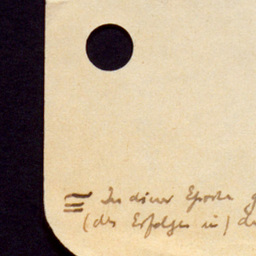 In dieser Epoche g
(des Erfolges in) de